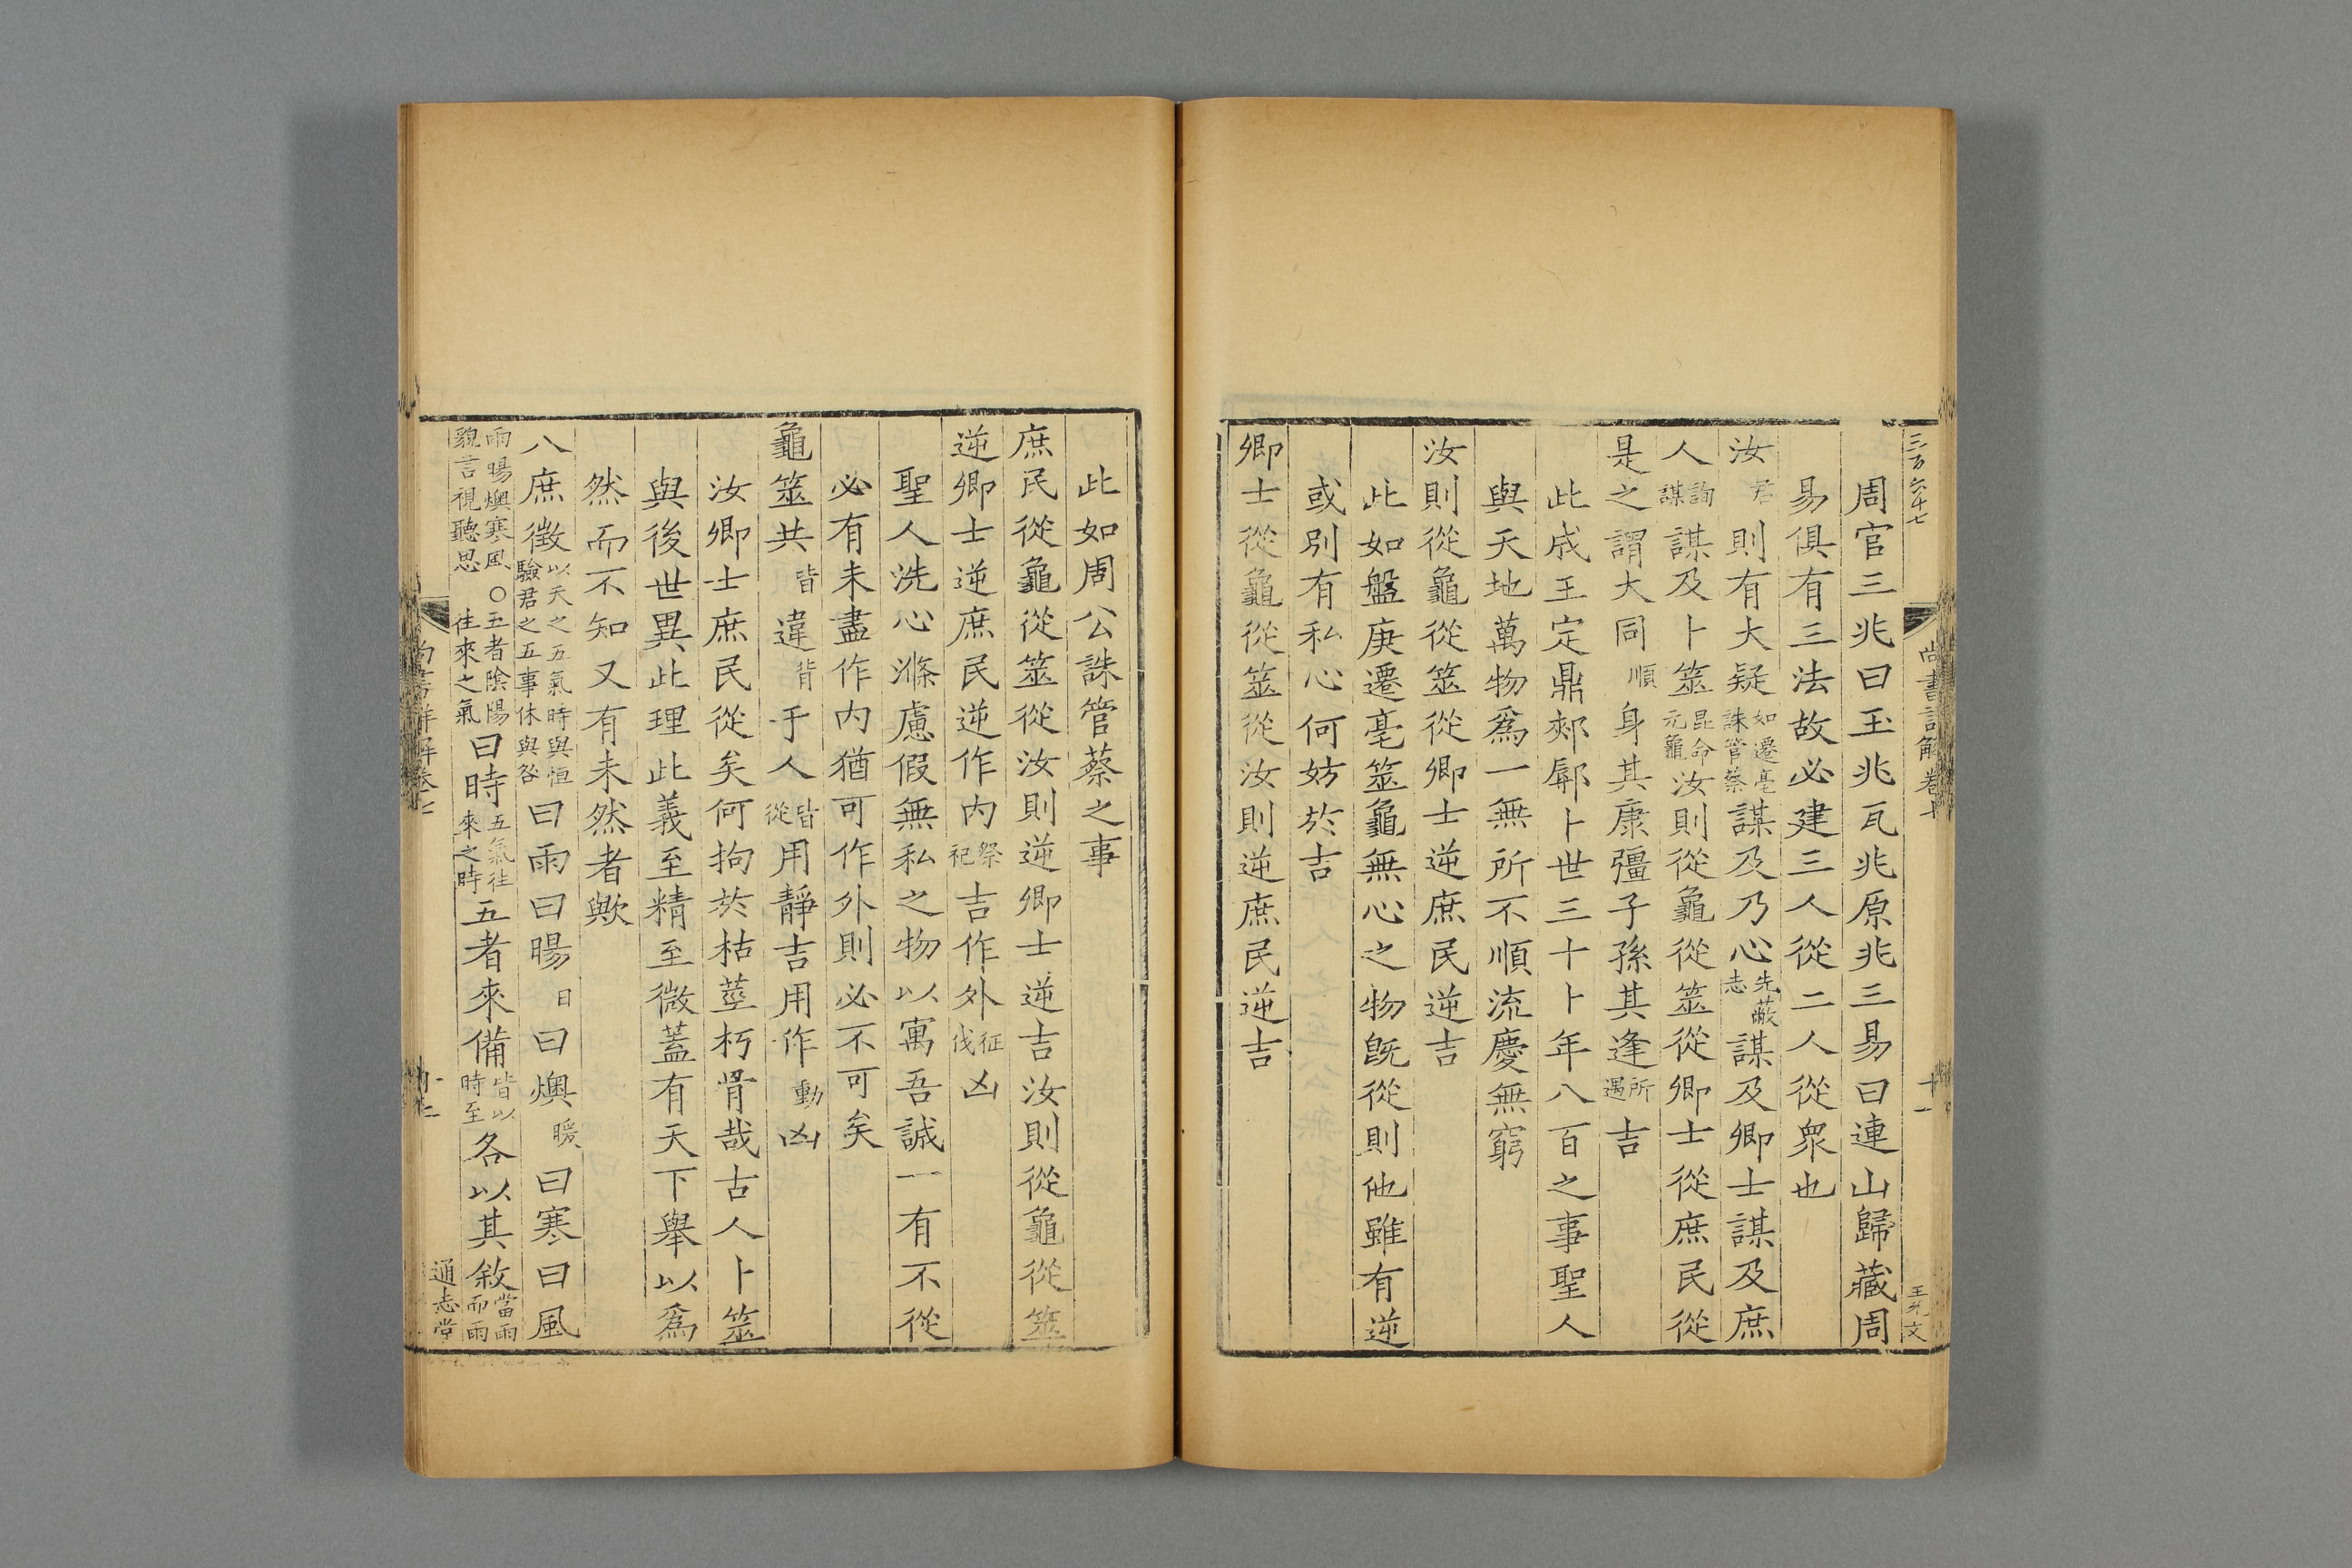 三百六十七
尚書詳解卷七
十一
王允文
周官三兆曰玉兆瓦兆原兆三易曰連山歸藏周
易俱有三法故必建三人從二人從衆也
汝君則有大疑如遷亳誅管蔡謀及乃心先蔽志謀及卿士謀及庶
人詢謀謀及卜筮昆命元龜汝則從龜從筮從卿士從庶民從
是之謂大同順身其康彊子孫其逢所遇吉
此成王定鼎郟鄏卜世三十卜年八百之事聖人
與天地萬物爲一無所不順流慶無窮
汝則從龜從筮從卿士逆庶民逆吉
此如盤庚遷亳筮龜無心之物旣從則他雖有逆
或別有私心何妨於吉
卿士從龜從筮從汝則逆庶民逆吉
此如周公誅管蔡之事
庶民從龜從筮從汝則逆卿士逆吉汝則從龜從筮
逆卿士逆庶民逆作內祭祀吉作外征伐凶
聖人洗心滌慮假無私之物以寓吾誠一有不從
必有未盡作內猶可作外則必不可矣
龜筮共皆違背于人皆從用靜吉用作動凶
汝卿士庶民從矣何拘於枯莖朽骨哉古人卜筮
與後世異此理此義至精至微蓋有天下舉以爲
然而不知又有未然者歟
八庶徵以天之五氣時與恒驗君之五事休與咎曰雨曰暘日曰燠暖曰寒曰風
雨暘燠寒風○五者陰陽貌言視聽思往來之氣曰時五氣往來之時五者來備皆以時至各以其敘當雨而雨
尚書詳解卷七
通志堂